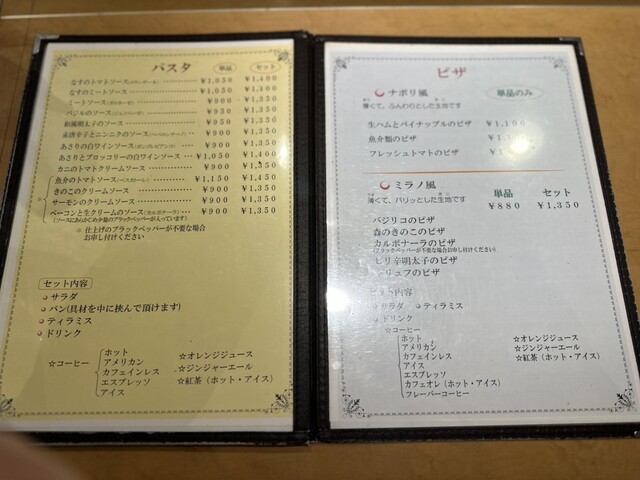 パスタ 単品 セット
なすのトマトソース ¥1,050 ¥1,400
なすのミートソース ¥1,050 ¥1,400
ミートソース ¥900 ¥1,350
バジルのソース ¥950 ¥1,350
和風明太子のソース ¥950 ¥1,350
赤唐辛子とニンニクのソース ¥900 ¥1,350
あさりの白ワインソース ¥900 ¥1,350
あさりとブロッコリーの白ワインソース ¥1,050 ¥1,400
カニのトマトクリームソース ¥900 ¥1,350
魚介のトマトソース ¥1,150 ¥1,450
きのこのクリームソース ¥900 ¥1,350
サーモンのクリームソース ¥900 ¥1,350
ベーコンと生クリームのソース(カルボナーラ) ¥900 ¥1,350
(ソースにあらかじめ少量のブラックペッパーが入っています)
※仕上げのブラックペッパーが不要な場合
お申し付けください
セット内容
サラダ
パン(具材を中に挟んで頂けます)
ティラミス
ドリンク
☆コーヒー
ホット
アメリカン
カフェインレス
エスプレッソ
アイス
☆オレンジジュース
☆ジンジャーエール
☆紅茶(ホット・アイス)
ピザ
ナポリ風 単品のみ
薄くて、ふんわりとした生地です
生ハムとパイナップルのピザ
魚介類のピザ
フレッシュトマトのピザ
ミラノ風 単品 セット
薄くて、パリッとした生地です ¥880 ¥1,350
バジリコのピザ
森のきのこのピザ
カルボナーラのピザ
(ブラックペッパーが不要な場合お申し付けください)
ピリ辛明太子のピザ
リュフのピザ
セット内容
サラダ ティラミス
ドリンク
☆コーヒー
ホット
アメリカン
カフェインレス
アイス
エスプレッソ
カフェオレ(ホット・アイス)
フレーバーコーヒー
☆オレンジジュース
☆ジンジャーエール
☆紅茶(ホット・アイス)